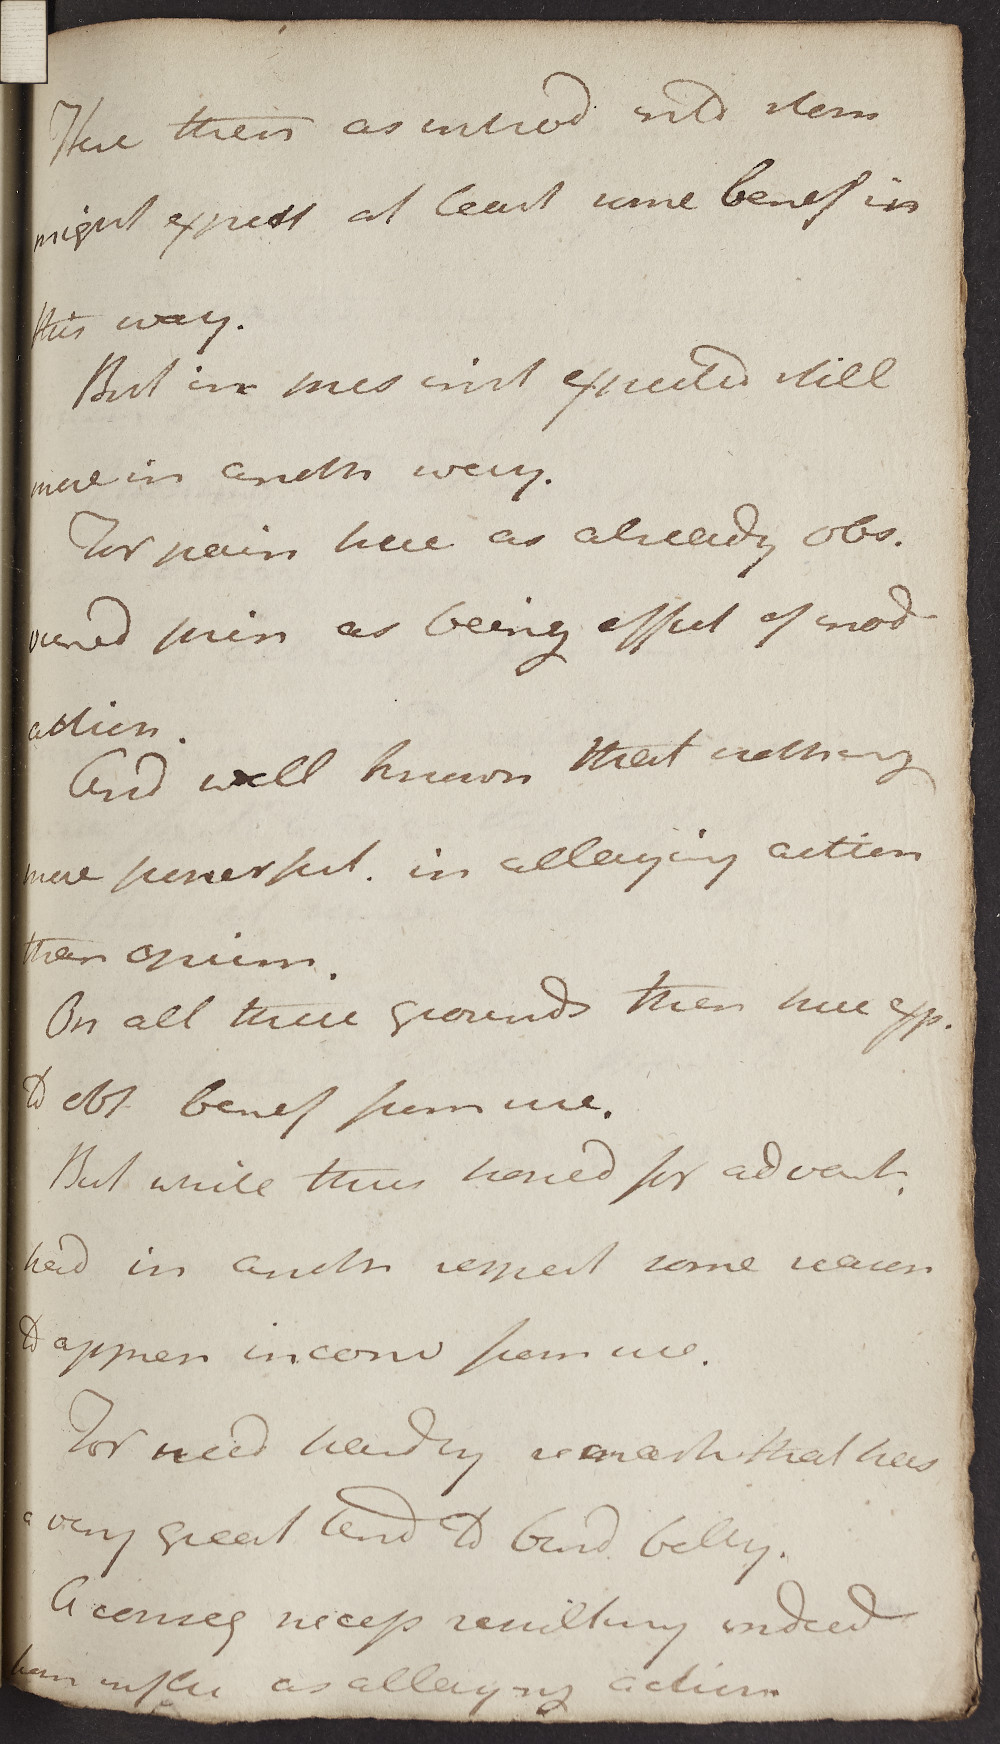 Here then as introd into stom
might expect at least some benef in
this way.
But in pres inst expected still
more in anoth way.
For pain here as already obs.
viewed prin as being effect of mod
action.
And well known that nothing
more powerful. in allaying action
than opium.
On all these grounds then here exp.
to obt benef from use.
But while thus hoped for advant.
had in anoth respect some reason
to appreh inconv from use.
For need hardly remark that has
a very great tend to bind belly.
A conseq necess resulting indeed
from influ as allaying action